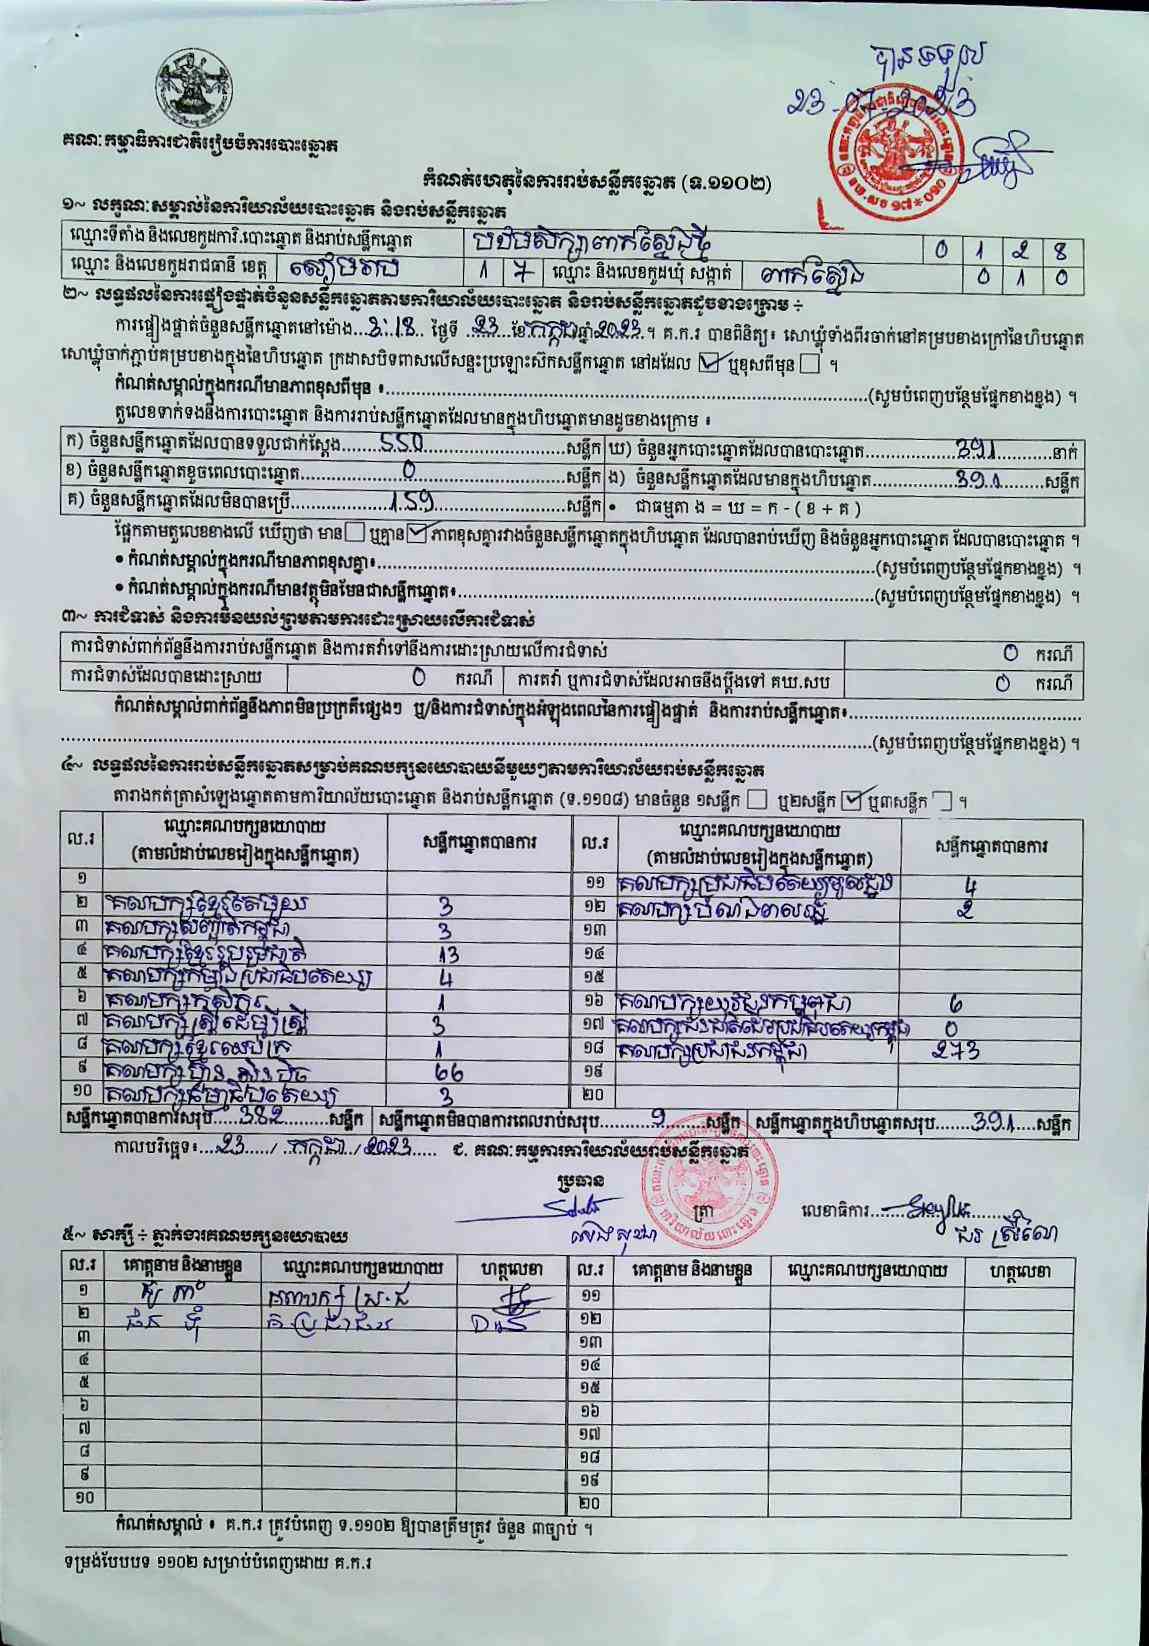 បានទទួល
23-07-2023
គណៈកម្មាធិការជាតិរៀបចំការបោះឆ្នោត
កំណត់ហេតុនៃការរាប់សន្លឹកឆ្នោត (ទ.១១០២)
១~ លក្ខណៈសម្គាល់នៃការិយាល័យបោះឆ្នោត និងរាប់សន្លឹកឆ្នោត
ឈ្មោះទីតាំង និងលេខកូដការិ.បោះឆ្នោត និងរាប់សន្លឹកឆ្នោត បឋមសិក្សាពាក់ស្នែងថ្មី 0 1 2 8
ឈ្មោះ និងលេខកូដរាជធានី ខេត្ត សៀមរាប 1 7 ឈ្មោះ និងលេខកូដឃុំ សង្កាត់ ពាក់ស្នែង 0 1 0
២~ លទ្ធផលនៃការផ្ទៀងផ្ទាត់ចំនួនសន្លឹកឆ្នោតតាមការិយាល័យបោះឆ្នោត និងរាប់សន្លឹកឆ្នោតដូចខាងក្រោម ÷
ការផ្ទៀងផ្ទាត់ចំនួនសន្លឹកឆ្នោតនៅម៉ោង...3:18... ថ្ងៃទី ...23...ខែ កក្កដា ឆ្នាំ 2023...។ គ.ក.រ បានពិនិត្យ៖ សោឃ្លុំទាំងពីរចាក់នៅគម្របខាងក្រៅនៃហិបឆ្នោត
សោឃ្លុំចាក់ភ្ជាប់គម្របខាងក្នុងនៃហិបឆ្នោត ក្រដាសបិទពាសលើសន្ទះប្រឡោះស៊កសន្លឹកឆ្នោត នៅដដែល ☑ ឬខុសពីមុន ☐ ។
កំណត់សម្គាល់ក្នុងករណីមានភាពខុសពីមុន ៖...(សូមបំពេញបន្ថែមផ្នែកខាងខ្នង) ។
តួលេខទាក់ទងនឹងការបោះឆ្នោត និងការរាប់សន្លឹកឆ្នោតដែលមានក្នុងហិបឆ្នោតមានដូចខាងក្រោម ៖
ក) ចំនួនសន្លឹកឆ្នោតដែលបានទទួលជាក់ស្តែង...550...សន្លឹក ឃ) ចំនួនអ្នកបោះឆ្នោតដែលបានបោះឆ្នោត...391...នាក់
ខ) ចំនួនសន្លឹកឆ្នោតខូចពេលបោះឆ្នោត...0...សន្លឹក ង) ចំនួនសន្លឹកឆ្នោតដែលមានក្នុងហិបឆ្នោត...391...សន្លឹក
គ) ចំនួនសន្លឹកឆ្នោតដែលមិនបានប្រើ...159...សន្លឹក • ជាធម្មតា ង = ឃ = ក - ( ខ + គ )
ផ្អែកតាមតួលេខខាងលើ ឃើញថា មាន ☐ ឬគ្មាន ☑ ភាពខុសគ្នារវាងចំនួនសន្លឹកឆ្នោតក្នុងហិបឆ្នោត ដែលបានរាប់ឃើញ និងចំនួនអ្នកបោះឆ្នោត ដែលបានបោះឆ្នោត ។
• កំណត់សម្គាល់ក្នុងករណីមានភាពខុសគ្នា៖...(សូមបំពេញបន្ថែមផ្នែកខាងខ្នង) ។
• កំណត់សម្គាល់ក្នុងករណីមានវត្ថុមិនមែនជាសន្លឹកឆ្នោត៖...(សូមបំពេញបន្ថែមផ្នែកខាងខ្នង) ។
៣~ ការជំទាស់ និងការមិនយល់ព្រមតាមការដោះស្រាយលើការជំទាស់
ការជំទាស់ពាក់ព័ន្ធនឹងការរាប់សន្លឹកឆ្នោត និងការតវ៉ាទៅនឹងការដោះស្រាយលើការជំទាស់ 0 ករណី
ការជំទាស់ដែលបានដោះស្រាយ 0 ករណី ការតវ៉ា ឬការជំទាស់ដែលអាចនឹងប្តឹងទៅ គឃ.សប 0 ករណី
កំណត់សម្គាល់ពាក់ព័ន្ធនឹងភាពមិនប្រក្រតីផ្សេងៗ ឬ/និងការជំទាស់ក្នុងអំឡុងពេលនៃការផ្ទៀងផ្ទាត់ និងការរាប់សន្លឹកឆ្នោត៖...
...(សូមបំពេញបន្ថែមផ្នែកខាងខ្នង) ។
៤~ លទ្ធផលនៃការរាប់សន្លឹកឆ្នោតសម្រាប់គណបក្សនយោបាយនីមួយៗតាមការិយាល័យរាប់សន្លឹកឆ្នោត
តារាងកត់ត្រាសំឡេងឆ្នោតតាមការិយាល័យបោះឆ្នោត និងរាប់សន្លឹកឆ្នោត (ទ.១១០៨) មានចំនួន ១សន្លឹក ☐ ឬ២សន្លឹក ☑ ឬ៣សន្លឹក ☐ ។
ល.រ ឈ្មោះគណបក្សនយោបាយ (តាមលំដាប់លេខរៀងក្នុងសន្លឹកឆ្នោត) សន្លឹកឆ្នោតបានការ ល.រ ឈ្មោះគណបក្សនយោបាយ (តាមលំដាប់លេខរៀងក្នុងសន្លឹកឆ្នោត) សន្លឹកឆ្នោតបានការ
១ ១១ គណបក្សប្រជាធិបតេយ្យមូលដ្ឋាន 4
២ គណបក្សខ្មែរតែមួយ 3 ១២ គណបក្សបំណងពលរដ្ឋ 2
៣ គណបក្សសញ្ជាតិកម្ពុជា 3 ១៣
៤ គណបក្សខ្មែររួបរួមជាតិ 13 ១៤
៥ គណបក្សកម្លាំងប្រជាធិបតេយ្យ 4 ១៥
៦ គណបក្សកសិករ 1 ១៦ គណបក្សយុវជនកម្ពុជា 6
៧ គណបក្សស្រ្តីដើម្បីស្រ្តី 3 ១៧ គណបក្សជនជាតិដើមប្រជាធិបតេយ្យកម្ពុជា 0
៨ គណបក្សខ្មែរឈប់ក្រ 1 ១៨ គណបក្សប្រជាជនកម្ពុជា 273
៩ គណបក្សហ៊្វុនស៊ិនប៉ិច 66 ១៩
១០ គណបក្សធម្មាធិបតេយ្យ 3 ២០
សន្លឹកឆ្នោតបានការសរុប...382...សន្លឹក សន្លឹកឆ្នោតមិនបានការពេលរាប់សរុប...9...សន្លឹក សន្លឹកឆ្នោតក្នុងហិបឆ្នោតសរុប...391...សន្លឹក
កាលបរិច្ឆេទ៖...23.../ កក្កដា / 2023... ជ. គណៈកម្មការការិយាល័យរាប់សន្លឹកឆ្នោត
ប្រធាន
ត្រា លេខាធិការ...
៥~ សាក្សី ÷ ភ្នាក់ងារគណបក្សនយោបាយ
ល.រ គោត្តនាម និងនាមខ្លួន ឈ្មោះគណបក្សនយោបាយ ហត្ថលេខា ល.រ គោត្តនាម និងនាមខ្លួន ឈ្មោះគណបក្សនយោបាយ ហត្ថលេខា
១ ១១
២ គ.ប្រជាជន ១២
៣ ១៣
៤ ១៤
៥ ១៥
៦ ១៦
៧ ១៧
៨ ១៨
៩ ១៩
១០ ២០
កំណត់សម្គាល់ ៖ គ.ក.រ ត្រូវបំពេញ ទ.១១០២ ឱ្យបានត្រឹមត្រូវ ចំនួន ៣ច្បាប់ ។
ទម្រង់បែបបទ ១១០២ សម្រាប់បំពេញដោយ គ.ក.រ